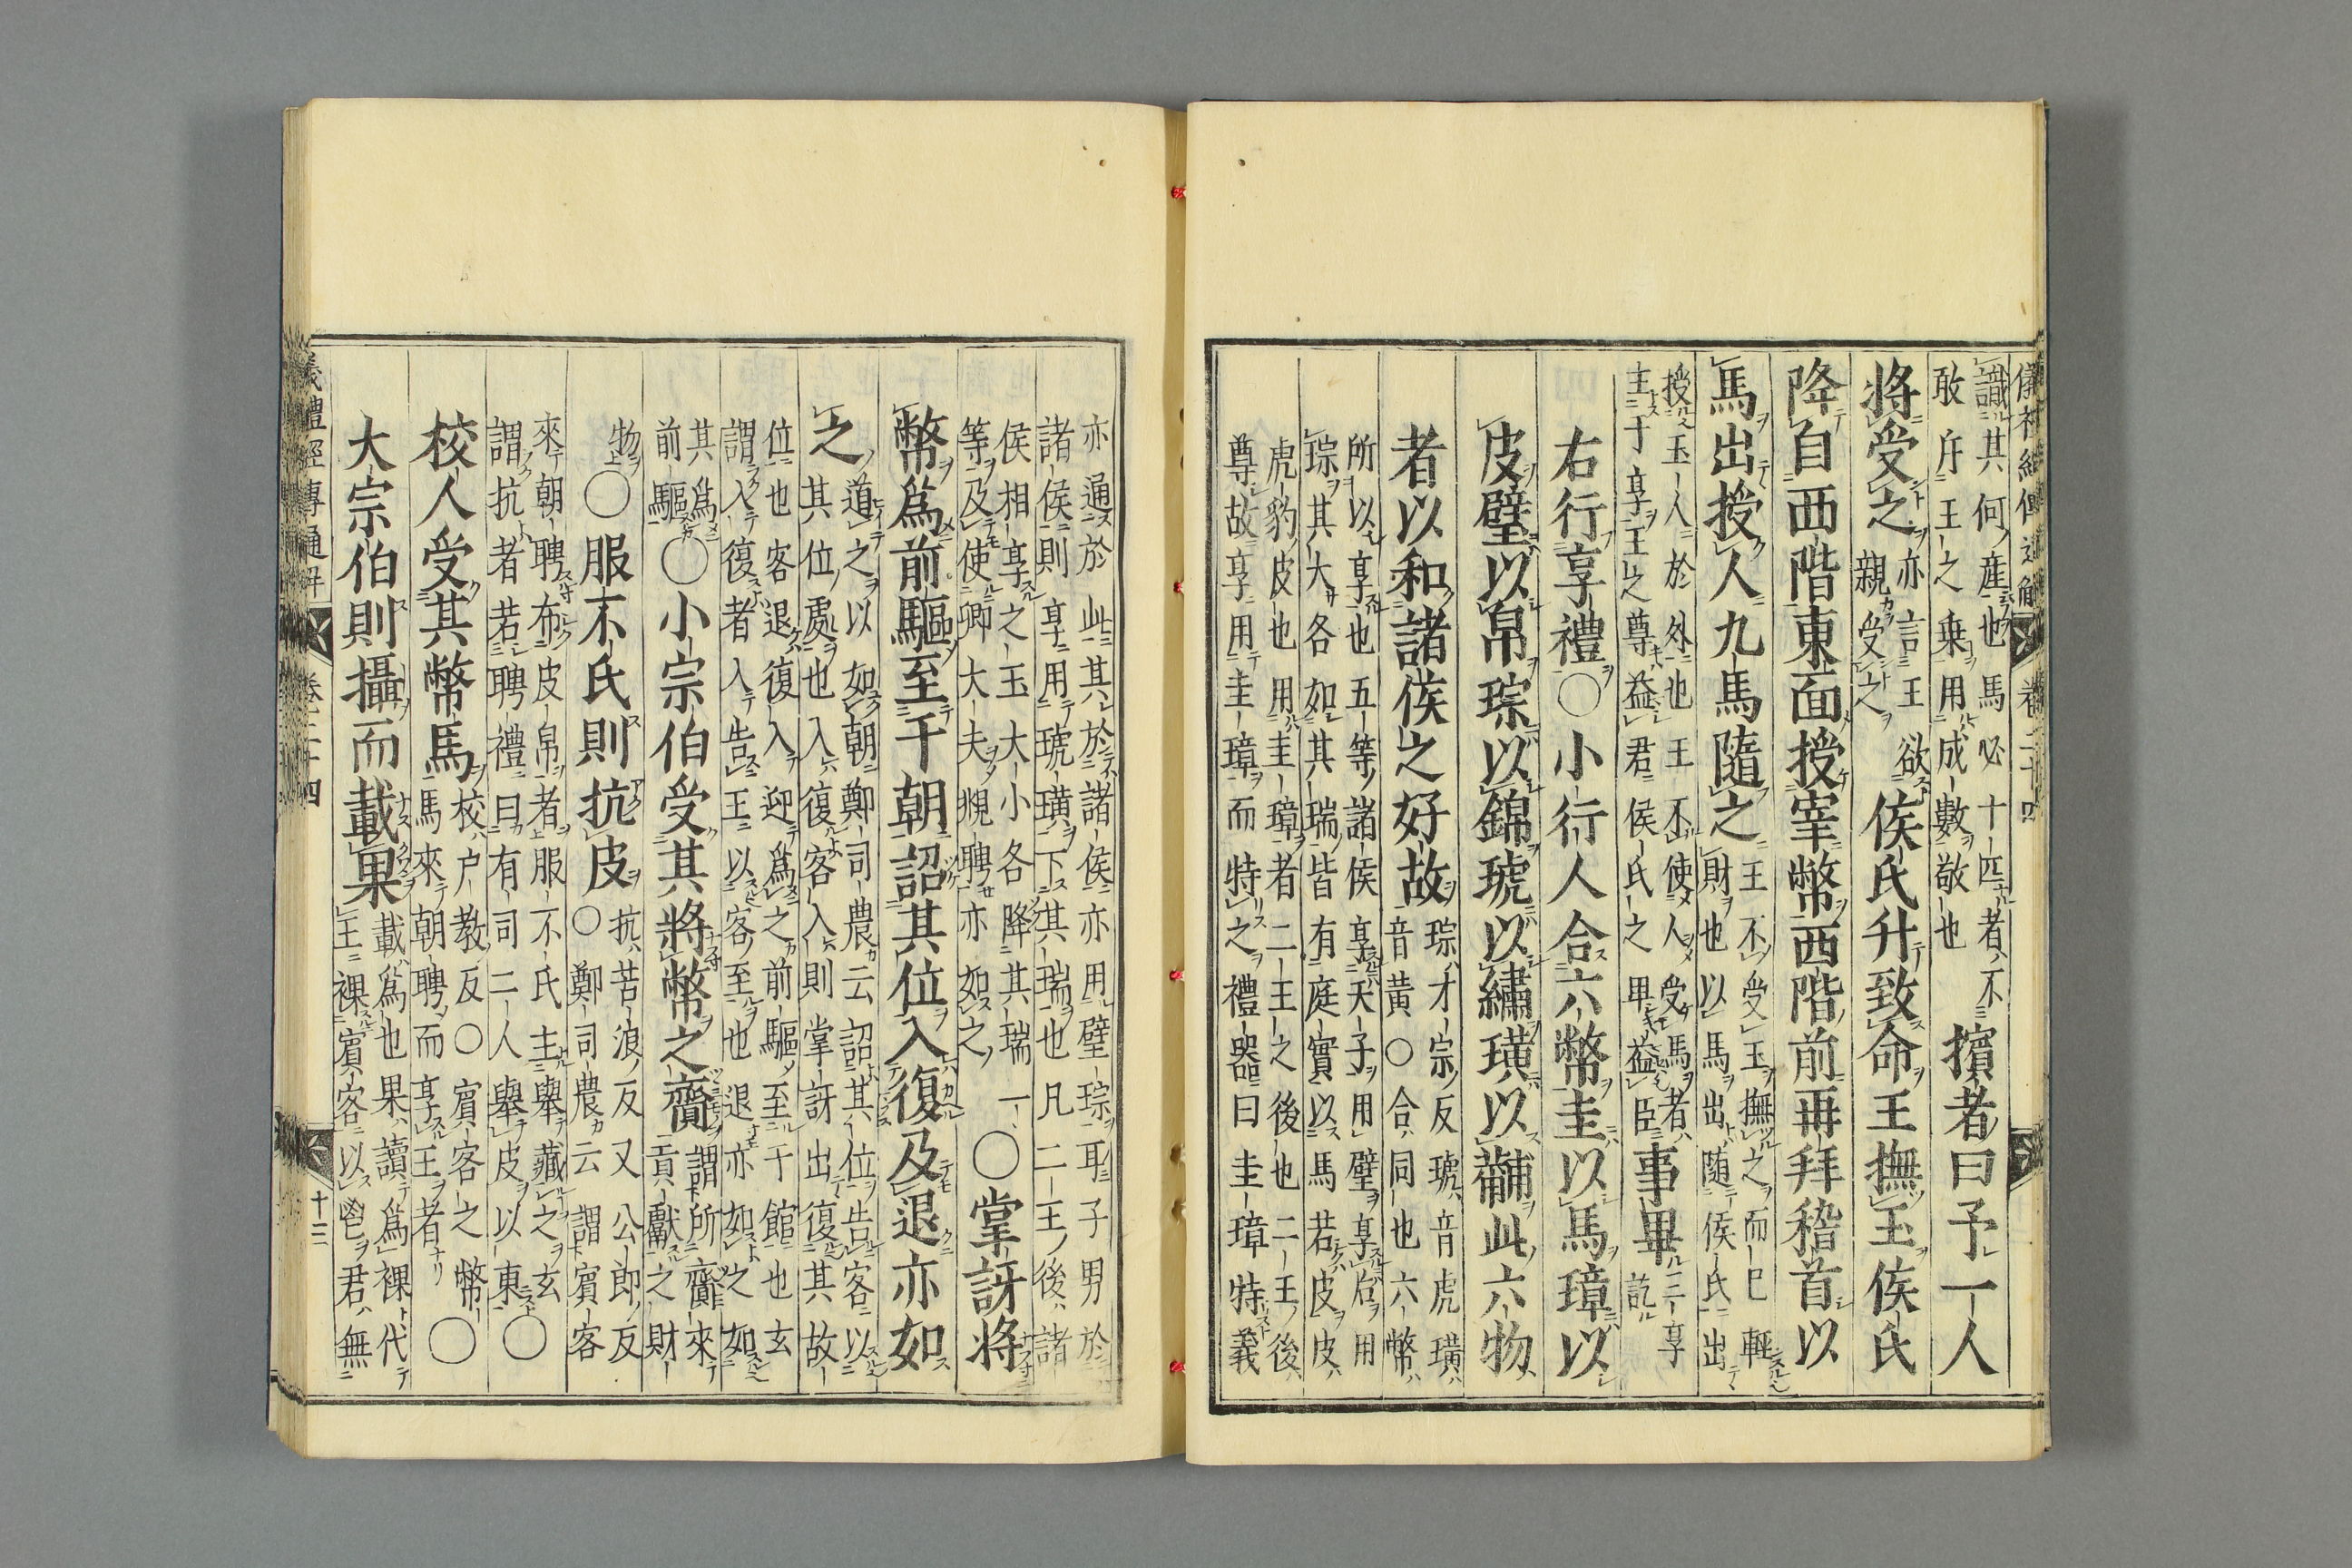 儀禮經傳通解 卷二十四
識其何產也馬必十匹者不敢斥王之乘用成數敬也擯者曰予一人
將受之亦言王欲親受之侯氏升致命王撫玉侯氏
降自西階東面授宰幣西階前再拜稽首以
馬出授人九馬隨之王不受玉撫之而已輕財也以馬出随侯氏出
授玉人於外也王不使人受馬者主于享王之尊益君侯氏之卑益臣事畢三享訖
右行享禮○小行人合六幣圭以馬璋以
皮璧以帛琮以錦琥以繡璜以黼此六物
者以和諸侯之好故琮才宗反琥音虎璜音黃○合同也六幣
所以享也五等諸侯享天子用璧享后用琮其大各如其瑞皆有庭實以馬若皮皮
虎豹皮也用圭璋者二王之後也二王後尊故享用圭璋而特之禮器曰圭璋特義
亦通於此其於諸侯亦用璧琮耳子男於諸侯則享用琥璜下其瑞也凡二王後諸
侯相享之玉大小各降其瑞一等及使卿大夫覜聘亦如之○掌訝將
幣爲前驅至于朝詔其位入復及退亦如
之道之以如朝鄭司農云詔其位告客以其位處也入復客入則掌訝出復其故
位也客退復入迎爲之前驅至于館也玄謂入復者入告王以客至也退亦如之如
其爲前驅○小宗伯受其將幣之齎謂所齎來貢獻之財
物○服不氏則抗皮抗苦浪反又公郎反○鄭司農云謂賓客
來朝聘布皮帛者服不氏主舉藏之玄謂抗者若聘禮曰有司二人舉皮以東○
校人受其幣馬校户教反○賓客之幣馬來朝聘而享王者○
大宗伯則攝而載果載爲也果讀爲祼代王祼賓客以鬯君無
儀禮經傳通解 卷二十四 十三